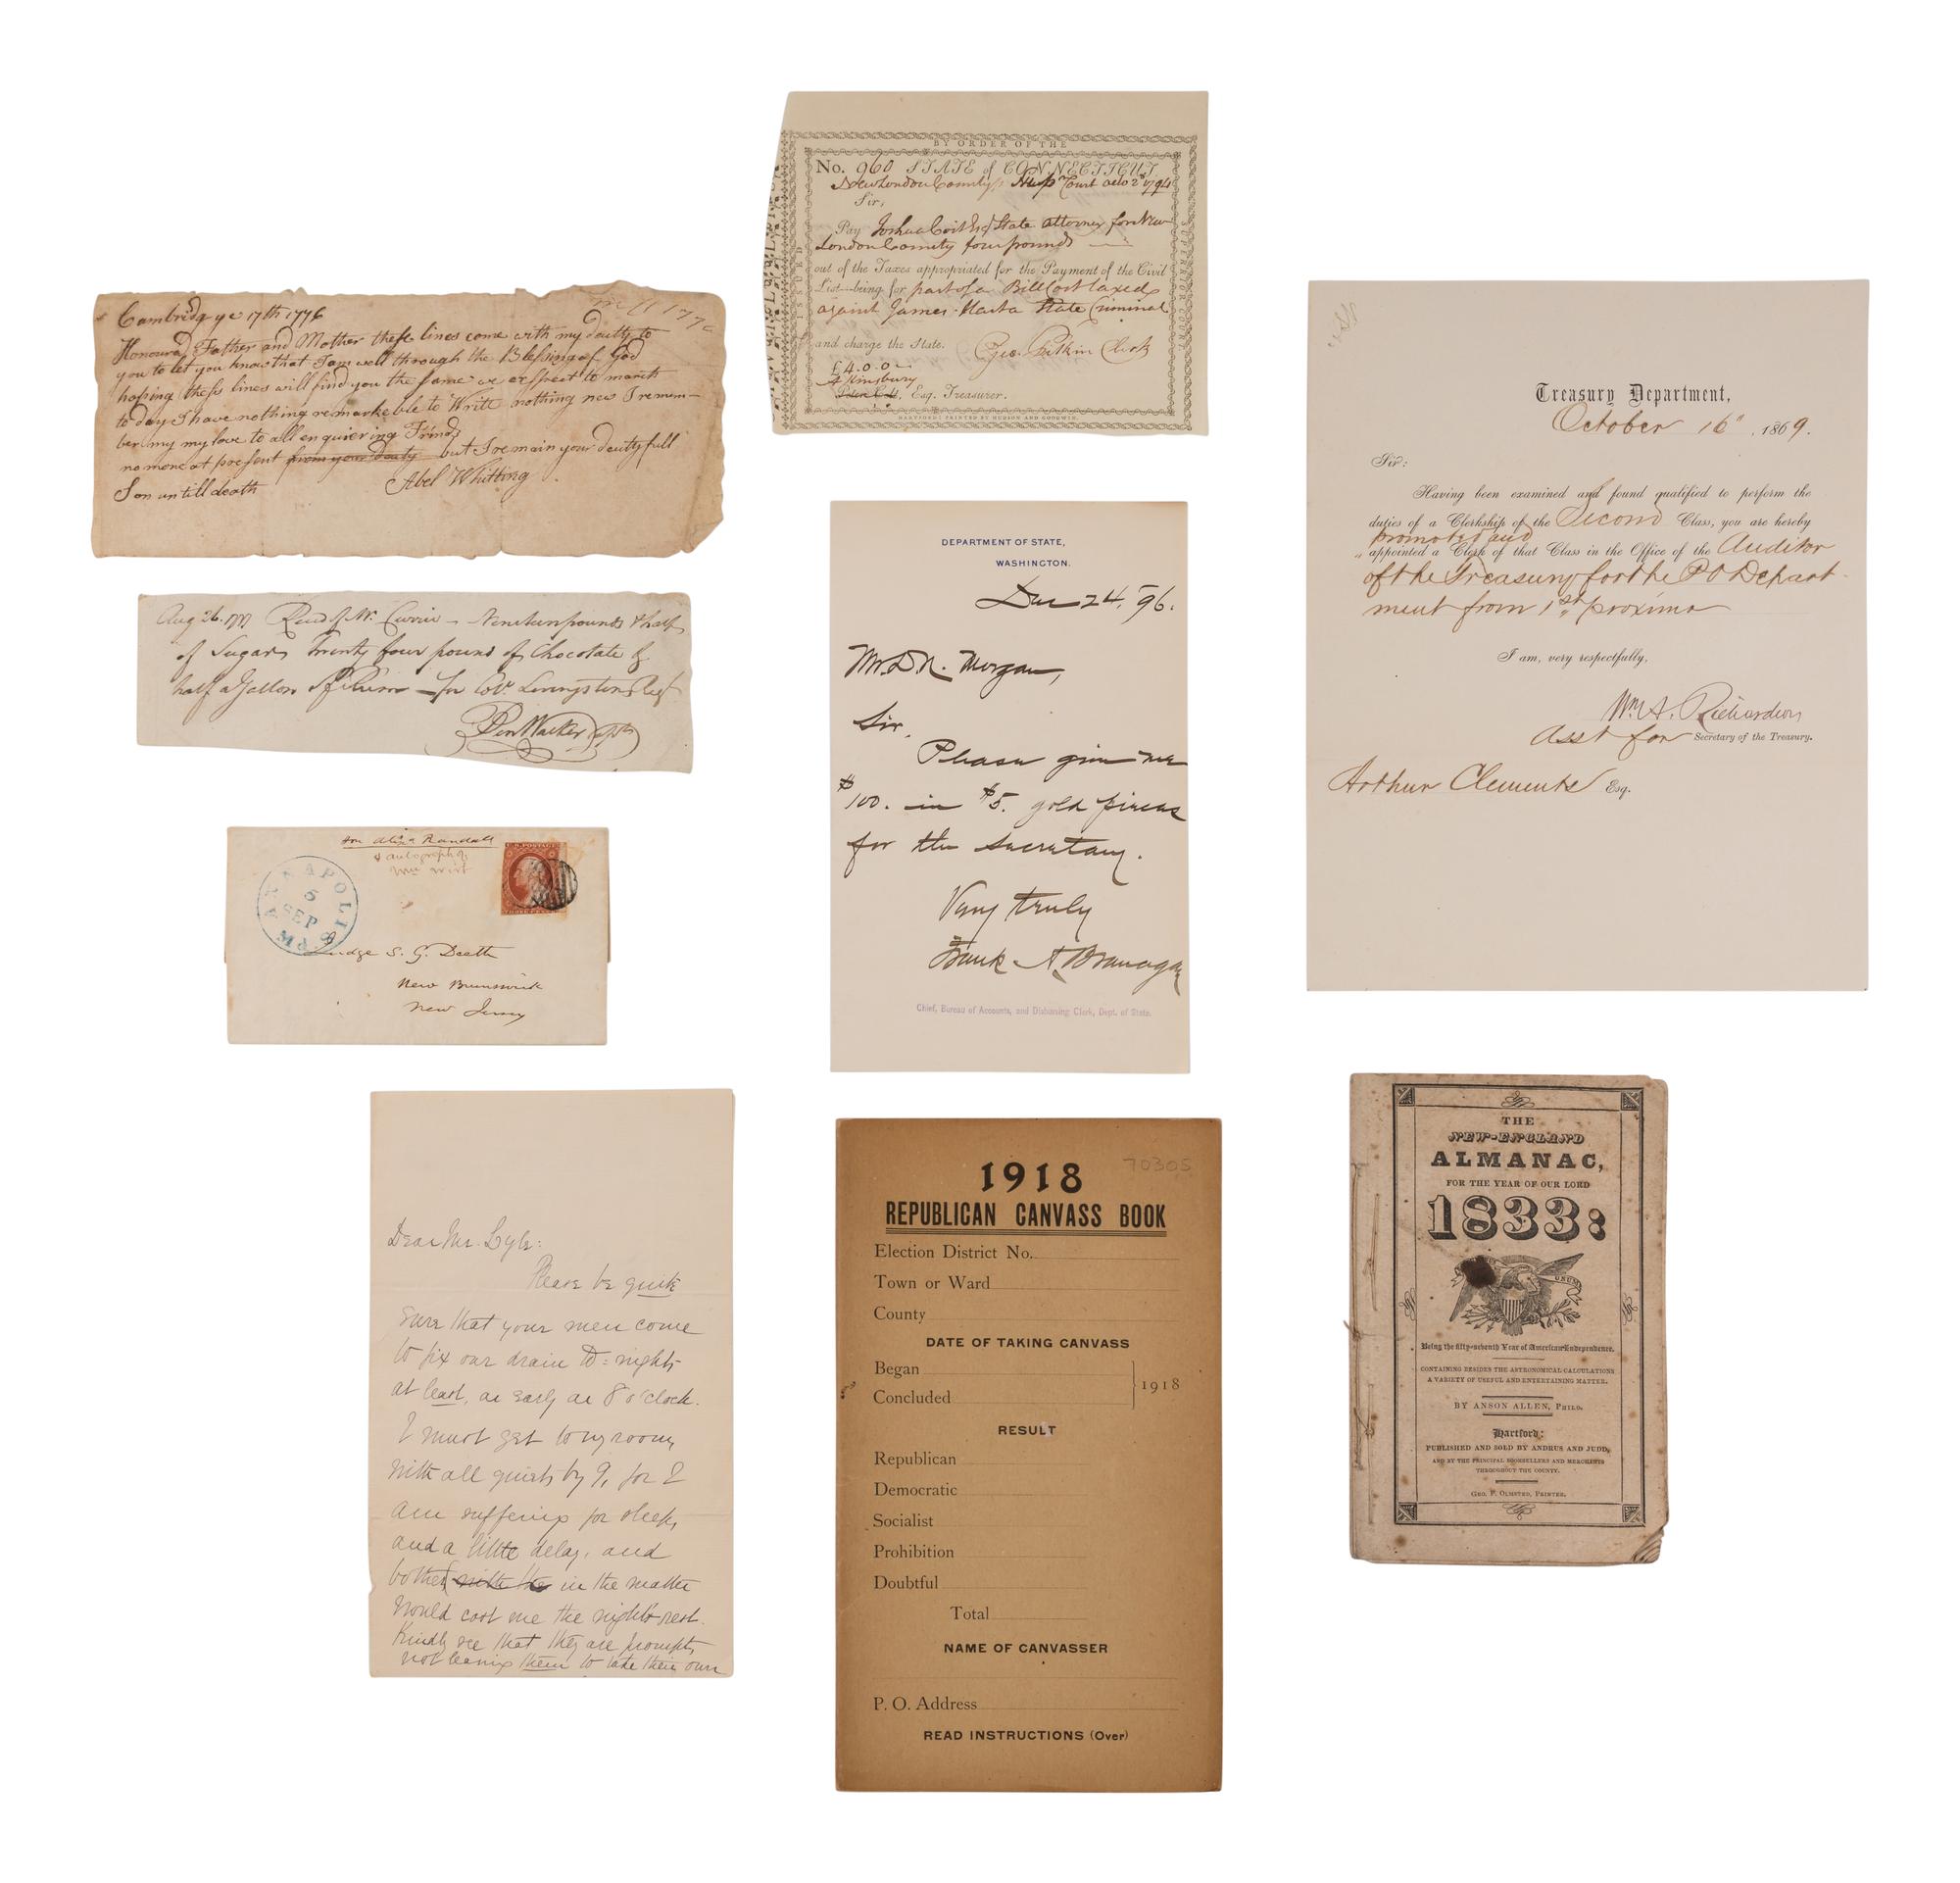 Cambridg ye 17th 1776
Honoured Father and Mother these lines come with my dauty to
you to let you know that I am well through the Blessing of God
hoping thess lines will find you the same we exspect to march
to day I have nothing remarkeble to Write nothing new I remem-
ber my my love to all enquiering Frinds
no more at present from your dauty but I remain your dautyfull
Son untill death Abel Whitting
1776
Aug 26. 1777 Recd of Mr. Currie - Nineteen pounds & half
of Sugar, Twenty four pound of Chocolate &
half a Gallon of Rum - for Col. Livingstons Regt
Ben Walker Capt
Hon Alex Randall
& autograph of
Wm Wirt
ANNAPOLIS
5
SEP
Md.
U.S. POSTAGE
Judge S. G. Deeth
New Brunswick
New Jersey
Dear Mr. Lyle:
Please be quite
sure that your men come
to fix our drain to=night
at least, as early as 8 o'clock.
I must get to my room,
with all quiet by 9, for I
am suffering for sleep,
and a little delay, and
bother with the in the matter
would cost me the night's rest.
Kindly see that they are prompt,
not leaving them to take their own
BY ORDER OF THE
SUPERIOR COURT.
No. 960 STATE of CONNECTICUT,
New London County, Sup Court 1794
Sir,
Pay Joshua Coit Esq State attorney for New
London County four pounds
out of the Taxes appropriated for the Payment of the Civil
List—being for part of a Bill Cost taxed
against James a State Criminal
and charge the State. Geo. Pitkin Clerk
£4.0.0
A Kinsbury
Esq. Treasurer.
HARTFORD: PRINTED BY HUDSON AND GOODWIN.
DEPARTMENT OF STATE,
WASHINGTON.
Dec 24, '96.
Mr D. N. Morgan,
Sir,
Please give me
$100. in $5. gold pieces
for the secretary.
Very truly
Frank A Branagan
Chief, Bureau of Accounts, and Disbursing Clerk, Dept. of State.
1918
70305
REPUBLICAN CANVASS BOOK
Election District No.
Town or Ward
County
DATE OF TAKING CANVASS
Began
Concluded
1918
RESULT
Republican
Democratic
Socialist
Prohibition
Doubtful
Total
NAME OF CANVASSER
P. O. Address
READ INSTRUCTIONS (Over)
Treasury Department,
October 16", 1869.
Sir:
Having been examined and found qualified to perform the
duties of a Clerkship of the Second Class, you are hereby
promoted and
appointed a Clerk of that Class in the Office of the Auditor
of the Treasury for the P O Depart-
ment from 1st proximo
I am, very respectfully,
Wm A. Richardson
Asst for Secretary of the Treasury.
Arthur Clements Esq.
THE
NEW-ENGLAND
ALMANAC,
FOR THE YEAR OF OUR LORD
1833:
UNUM
Being the fifty-seventh Year of American Independence.
CONTAINING BESIDES THE ASTRONOMICAL CALCULATIONS
A VARIETY OF USEFUL AND ENTERTAINING MATTER.
BY ANSON ALLEN, PHILO.
Hartford:
PUBLISHED AND SOLD BY ANDRUS AND JUDD,
AND BY THE PRINCIPAL BOOKSELLERS AND MERCHANTS
THROUGHOUT THE COUNTY.
GEO. F. OLMSTED, PRINTER.